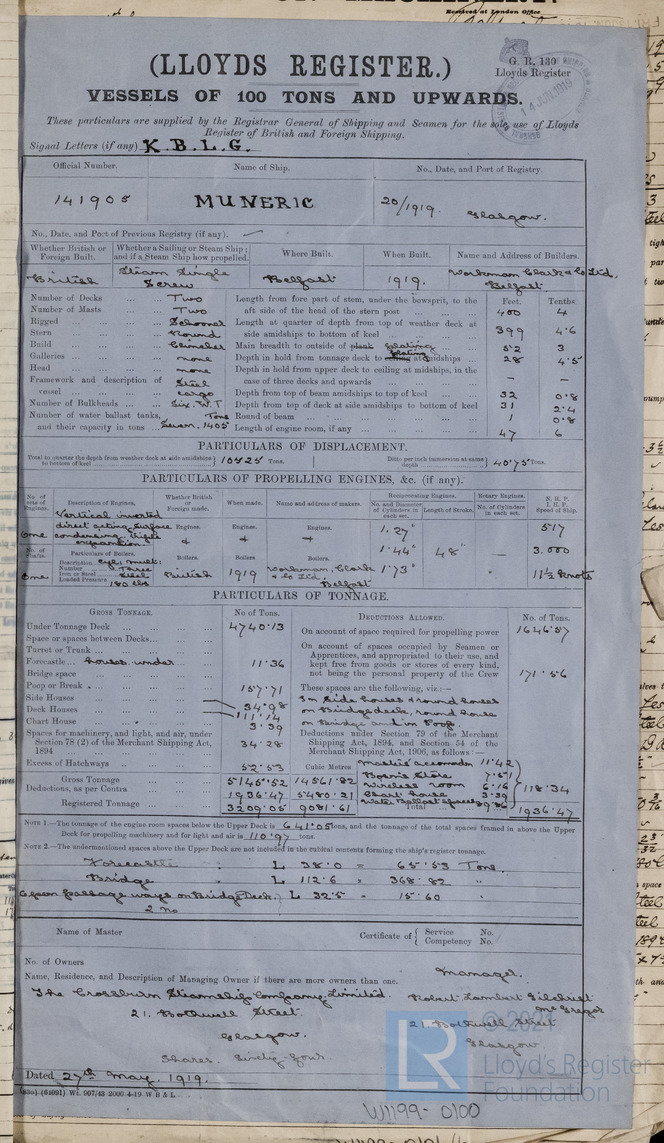 Reserved at London Office
(LLOYDS REGISTER.)
G. R. 130
Lloyds Register
14 JUN 1919
VESSELS OF 100 TONS AND UPWARDS.
These particulars are supplied by the Registrar General of Shipping and Seamen for the sole use of Lloyds
Register of British and Foreign Shipping.
Signal Letters (if any) K. B. L. G.
Official Number. Name of Ship. No., Date, and Port of Registry.
141905 MUNERIC 20/1919. Glasgow.
No., Date, and Port of Previous Registry (if any).
Whether British or Foreign Built. Whether a Sailing or Steam Ship; and if a Steam Ship how propelled. Where Built. When Built. Name and Address of Builders.
British Steam Single Screw Belfast 1919. Workman Clark & Co Ltd, Belfast.
Feet. Tenths
Number of Decks Two Length from fore part of stem, under the bowsprit, to the
Number of Masts Two aft side of the head of the stern post 400 4
Rigged Schooner Length at quarter of depth from top of weather deck at
Stern Round side amidships to bottom of keel 399 4·6
Build Clincher Main breadth to outside of plank plating 52 3
Galleries none Depth in hold from tonnage deck to ceiling plating at midships 28 4·5
Head none Depth in hold from upper deck to ceiling at midships, in the
Framework and description of Steel case of three decks and upwards – –
vessel cargo Depth from top of beam amidships to top of keel 32 0·8
Number of Bulkheads Six. W.T Depth from top of deck at side amidships to bottom of keel 31 2·4
Number of water ballast tanks, Tons Round of beam 1 0·8
and their capacity in tons Seven. 1405 Length of engine room, if any 47 6
PARTICULARS OF DISPLACEMENT.
Total to quarter the depth from weather deck at side amidships to bottom of keel 10525 Tons. Ditto per inch immersion at same depth 40·75 Tons.
PARTICULARS OF PROPELLING ENGINES, &c. (if any).
No. of sets of Engines. Description of Engines. Whether British or Foreign made. When made. Name and address of makers. Reciprocating Engines. No. and Diameter of Cylinders in each set. Length of Stroke. Rotary Engines. No. of Cylinders in each set. N. H. P. I. H. P. Speed of Ship.
One Vertical inverted direct acting surface condensing, triple expansion. Engines. Engines. Engines. 1·27" 517
No. of Shafts. Particulars of Boilers. Boilers. Boilers. Boilers. 1·44" 48" – 3.000
One Description cyl. mult. Number Three Iron or Steel Steel Loaded Pressure 180 lbs British 1919 Workman, Clark & Co Ltd, Belfast 1·73" 11½ knots
PARTICULARS OF TONNAGE.
GROSS TONNAGE. No of Tons. DEDUCTIONS ALLOWED. No. of Tons.
Under Tonnage Deck 4740·13 On account of space required for propelling power 1646·57
Space or spaces between Decks
Turret or Trunk
On account of spaces occupied by Seamen or
Apprentices, and appropriated to their use, and
kept free from goods or stores of every kind,
not being the personal property of the Crew 171·56
Forecastle houses under 11·36
Bridge space
Poop or Break 157·71
Side Houses 34·98
Deck Houses 111·14
Chart House 3·39
These spaces are the following, viz.:—
In Side houses & round house
on Bridge deck, round house
on Bridge and in Poop.
Spaces for machinery, and light, and air, under
Section 78 (2) of the Merchant Shipping Act,
1894 34·28
Deductions under Section 79 of the Merchant
Shipping Act, 1894, and Section 54 of the
Merchant Shipping Act, 1906, as follows:—
Excess of Hatchways 52·53
Cubic Metres
Gross Tonnage 5145·52 14561·82
Deductions, as per Contra 1936·47 5480·21
Registered Tonnage 3209·05 9081·61
Master's accomdn 11·42
Bosn's Store 7·51
Wireless room 6·16
Chart house 3·39
Water Ballast spaces 89·86
118·34
Total 1936·47
NOTE 1.—The tonnage of the engine room spaces below the Upper Deck is 641·05 tons, and the tonnage of the total spaces framed in above the Upper
Deck for propelling machinery and for light and air is 110·97 tons.
NOTE 2.—The undermentioned spaces above the Upper Deck are not included in the cubical contents forming the ship's register tonnage.
Forecastle L 38·0 = 65·53 Tons.
Bridge L 112·6 = 368·82 "
Open passage ways on Bridge Deck, L 32·5 = 15·60 "
2 no
Name of Master
Certificate of { Service No.
Competency No.
No. of Owners
Name, Residence, and Description of Managing Owner if there are more owners than one.
Manager.
The Crossburn Steamship Company, Limited. Robert Lambert Gilchrist McGregor
21. Bothwell Street. 21. Bothwell Street
Glasgow. Glasgow
Shares. Sixty-four
Dated 27th May, 1919.
(64091) Wt. 907/43 2000 4-19 W B & L
LR
© 2021
Lloyd's Register
Foundation
W1199-0100